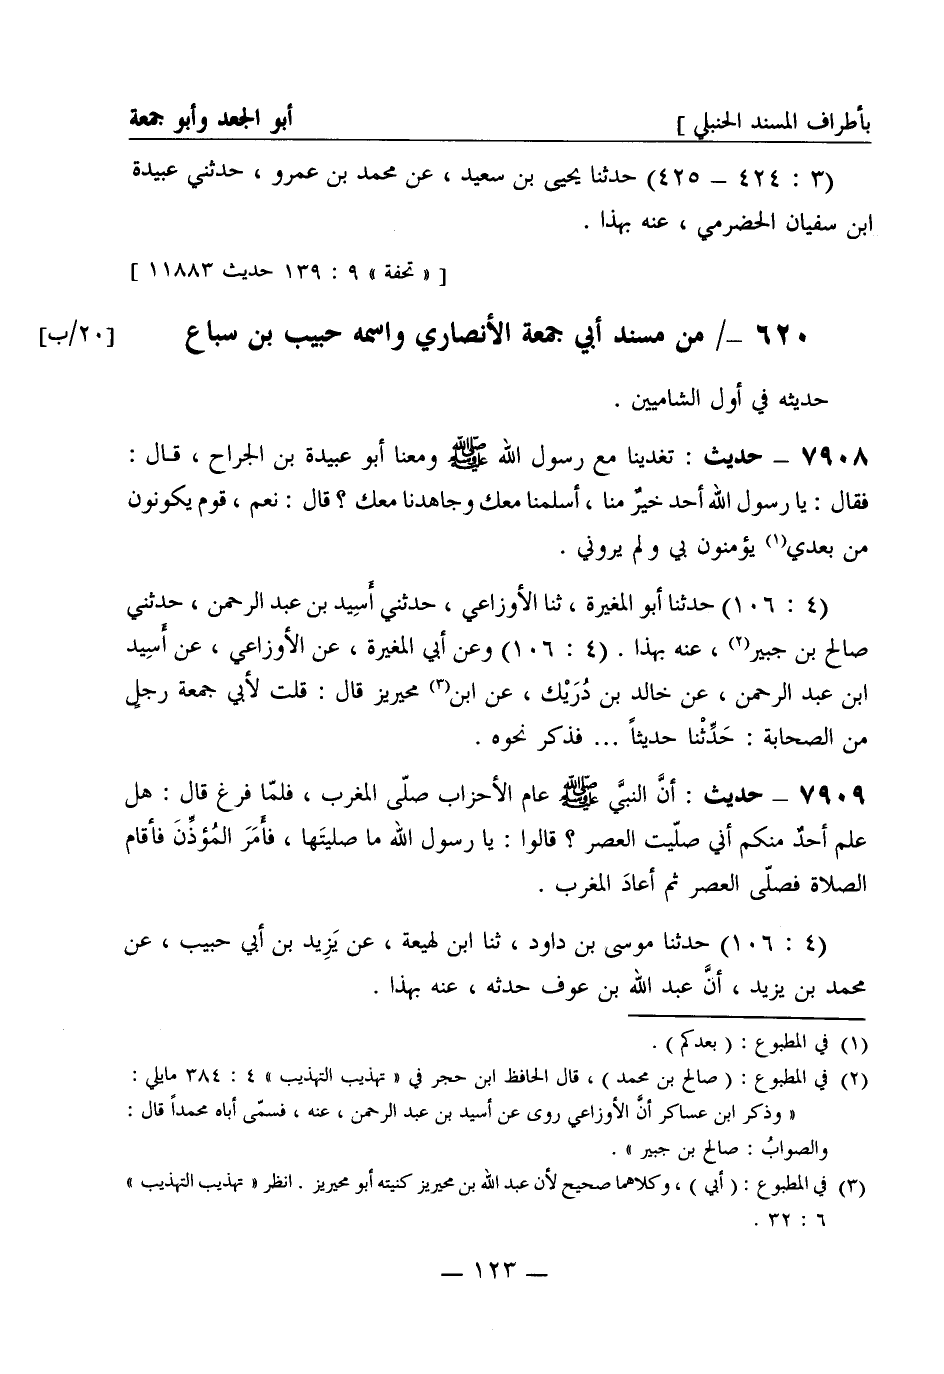 بأطراف المسند الحنبلي ] أبو الجعد وأبو جمعة
(٣ : ٤٢٤ ـ ٤٢٥) حدثنا يحيى بن سعيد ، عن محمد بن عمرو ، حدثني عبيدة
ابن سفيان الحضرمي ، عنه بهذا .
[ « تحفة » ٩ : ١٣٩ حديث ١١٨٨٣ ]
٦٢٠ ـ/ من مسند أبي جمعة الأنصاري واسمه حبيب بن سباع [٢٠/ب]
حديثه في أول الشاميين .
٧٩٠٨ ـ حديث : تغدينا مع رسول الله ﷺ ومعنا أبو عبيدة بن الجراح ، قال :
فقال : يا رسول الله أحد خيرٌ منا ، أسلمنا معك وجاهدنا معك ؟ قال : نعم ، قوم يكونون
من بعدي(١) يؤمنون بي ولم يروني .
(٤ : ١٠٦) حدثنا أبو المغيرة ، ثنا الأوزاعي ، حدثني أَسِيد بن عبد الرحمن ، حدثني
صالح بن جبير(٢) ، عنه بهذا . (٤ : ١٠٦) وعن أبي المغيرة ، عن الأوزاعي ، عن أَسِيد
ابن عبد الرحمن ، عن خالد بن دُرَيْك ، عن ابن(٣) محيريز قال : قلت لأبي جمعة رجلٍ
من الصحابة : حَدِّثْنا حديثاً ... فذكر نحوه .
٧٩٠٩ ـ حديث : أنَّ النبيَّ ﷺ عام الأحزاب صلّى المغرب ، فلمّا فرغ قال : هل
علم أحدٌ منكم أني صلّيت العصر ؟ قالوا : يا رسول الله ما صليتَها ، فأَمَرَ المُؤذِّنَ فأقام
الصلاة فصلّى العصر ثم أعادَ المغرب .
(٤ : ١٠٦) حدثنا موسى بن داود ، ثنا ابن لهيعة ، عن يَزِيد بن أبي حبيب ، عن
محمد بن يزيد ، أنَّ عبد الله بن عوف حدثه ، عنه بهذا .
(١) في المطبوع : ( بعدكم ) .
(٢) في المطبوع : ( صالح بن محمد ) ، قال الحافظ ابن حجر في « تهذيب التهذيب » ٤ : ٣٨٤ مايلي :
« وذكر ابن عساكر أنَّ الأوزاعي روى عن أسيد بن عبد الرحمن ، عنه ، فسمّى أباه محمداً قال :
والصوابُ : صالح بن جبير » .
(٣) في المطبوع : ( أبي ) ، وكلاهما صحيح لأن عبد الله بن محيريز كنيته أبو محيريز . انظر « تهذيب التهذيب »
٦ : ٣٢ .
ـ ١٢٣ ـ